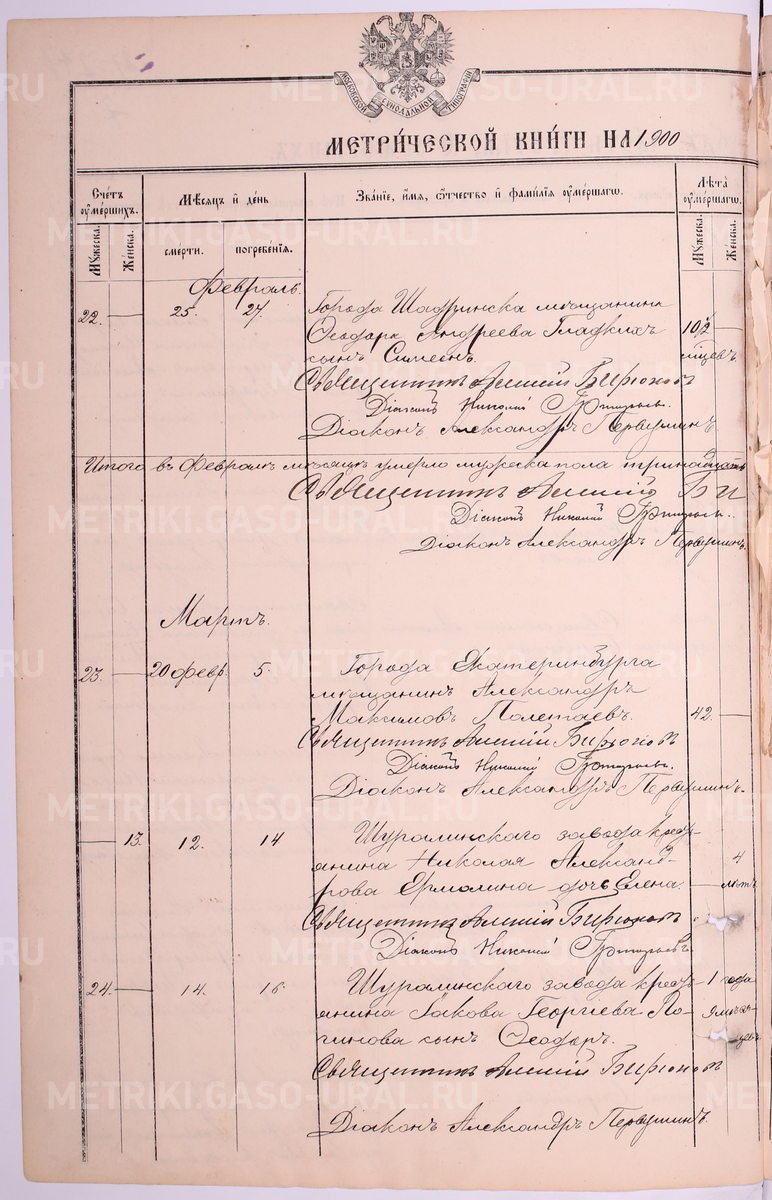 МОСКОВСКОЙ СѴНОДАЛЬНОЙ ТИПОГРАФІИ
МЕТРИ́ЧЕСКОЙ КНИ́ГИ НА 1900
Сче́тъ ᲂу҆ме́ршихъ.
Мѣ́сяцъ и҆ де́нь
Зва́нїе, и҆́мя, ѻ҆́тчество и҆ фами́лїя ᲂу҆ме́ршагѡ.
Лѣ́та ᲂу҆ме́ршагѡ.
Мꙋ́жеска. Же́нска. сме́рти. погребе́нїя. Мꙋ́жеска. Же́нска.
Февраль.
22. — 25. 27. Города Шадринска мѣщанина
Ѳеодора Андреева Гладкихъ 10½ —
сынъ Симеонъ. мѣсяцевъ
Священникъ Алексій Бирюковъ
Діаконъ Николай Григорьевъ.
Діаконъ Александръ Первушинъ
Итого въ Февралѣ мѣсяцѣ умерло мужеска пола тринадцать
Священникъ Алексій Би
Діаконъ Николай Григорьевъ.
Діаконъ Александръ Первушинъ.
Мартъ.
23. — 20 февр. 5. Города Екатеринбурга
мѣщанинъ Александръ
Максимовъ Полетаевъ. 42. —
Священникъ Алексій Бирюковъ
Діаконъ Николай Григорьевъ.
Діаконъ Александръ Первушинъ.
— 13. 12. 14 Шуралинскаго завода крестъ-
янина Николая Александ- 4
рова Ермолина дочь Елена. — лѣтъ
Священникъ Алексій Бирюковъ
Діаконъ Николай Григорьевъ
24. — 14. 16. Шуралинскаго завода кресть- 1 года
янина Іакова Георгіева Ло- 9 мѣся-
гинова сынъ Ѳеодоръ. цевъ
Священникъ Алексій Бирюковъ
Діаконъ Александръ Первушинъ.
METRIKI.GASO-URAL.RU